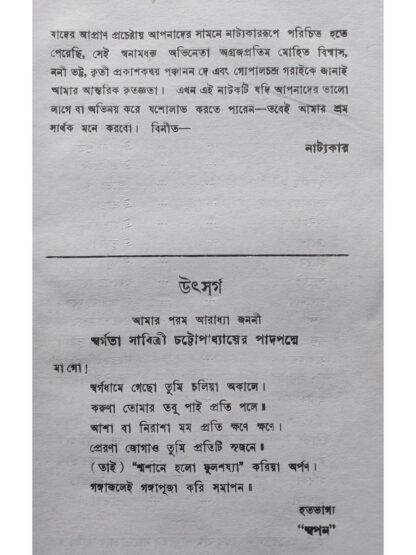 যাদের আপ্রাণ প্রচেষ্টায় আপনাদের সামনে নাট্যকাররূপে পরিচিত হতে
পেরেছি, সেই স্বনামধন্য অভিনেতা অগ্রজপ্রতিম মোহিত বিশ্বাস,
ননী ভট্ট, কৃতী প্রকাশকদ্বয় পঞ্চানন দে এবং গোপালচন্দ্র গরাইকে জানাই
আমার আন্তরিক কৃতজ্ঞতা। এখন এই নাটকটি যদি আপনাদের ভালো
লাগে বা অভিনয় করে যশোলাভ করতে পারেন—তবেই আমার শ্রম
সার্থক মনে করবো। বিনীত—
নাট্যকার
উৎসর্গ
আমার পরম আরাধ্যা জননী
স্বর্গতা সাবিত্রী চট্টোপাধ্যায়ের পাদপদ্মে
মাগো!
স্বর্গধামে গেছো তুমি চলিয়া অকালে।
করুণা তোমার তবু পাই প্রতি পলে॥
আশা বা নিরাশা মম প্রতি ক্ষণে ক্ষণে।
প্রেরণা জোগাও তুমি প্রতিটি সৃজনে॥
(তাই) “শ্মশানে হলো ফুলশয্যা” করিয়া অর্পণ।
গঙ্গাজলেই গঙ্গাপূজা করি সমাপন॥
হতভাগ্য
“স্বপন”